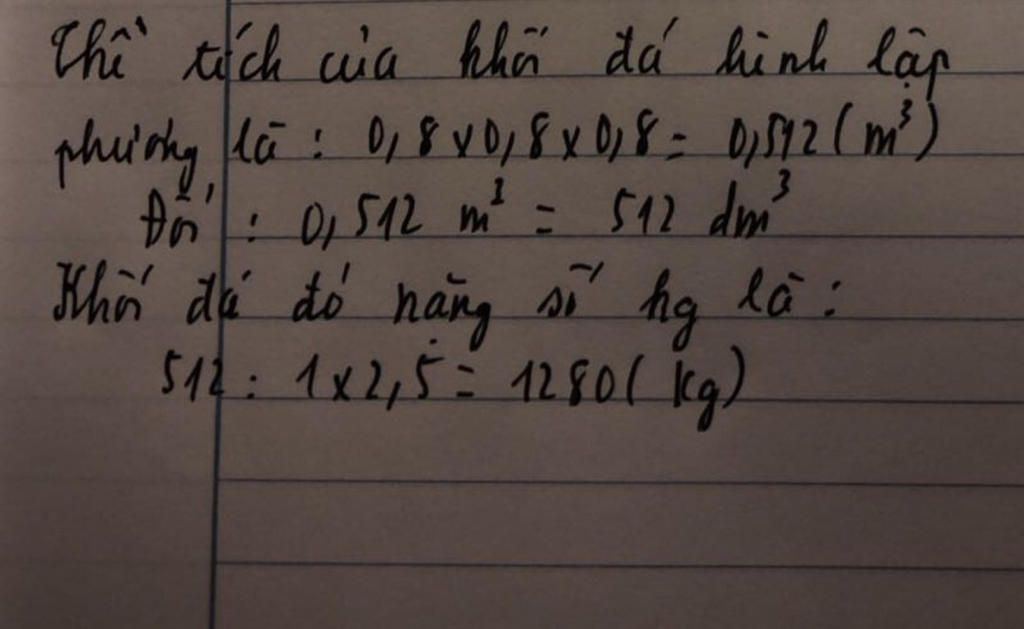 Thể tích của khối đá hình lập
phương là : 0,8 x 0,8 x 0,8 = 0,512 (m³)
Đổi : 0,512 m³ = 512 dm³
Khối đá đó nặng số kg là :
512 : 1 x 2,5 = 1280 ( kg)